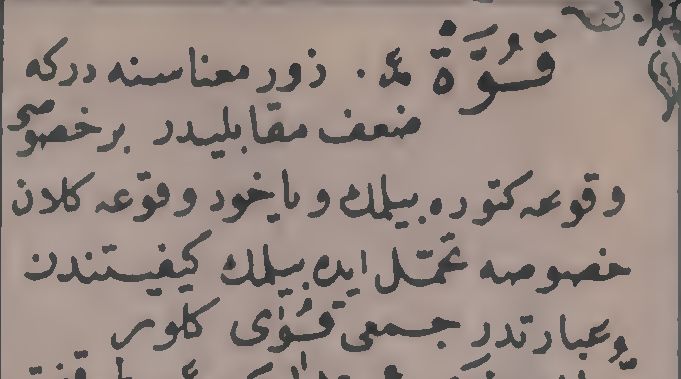 قُوَّةْ ع. زور معناسنه دركه
ضعف مقابليدر بر خصوصى
وقوعه كتوره بيلمك وياخود وقوعه كلان
خصوصه تحمّل ايده بيلمك كيفيتندن
عبارتدر جمعى قُوٰى كلور